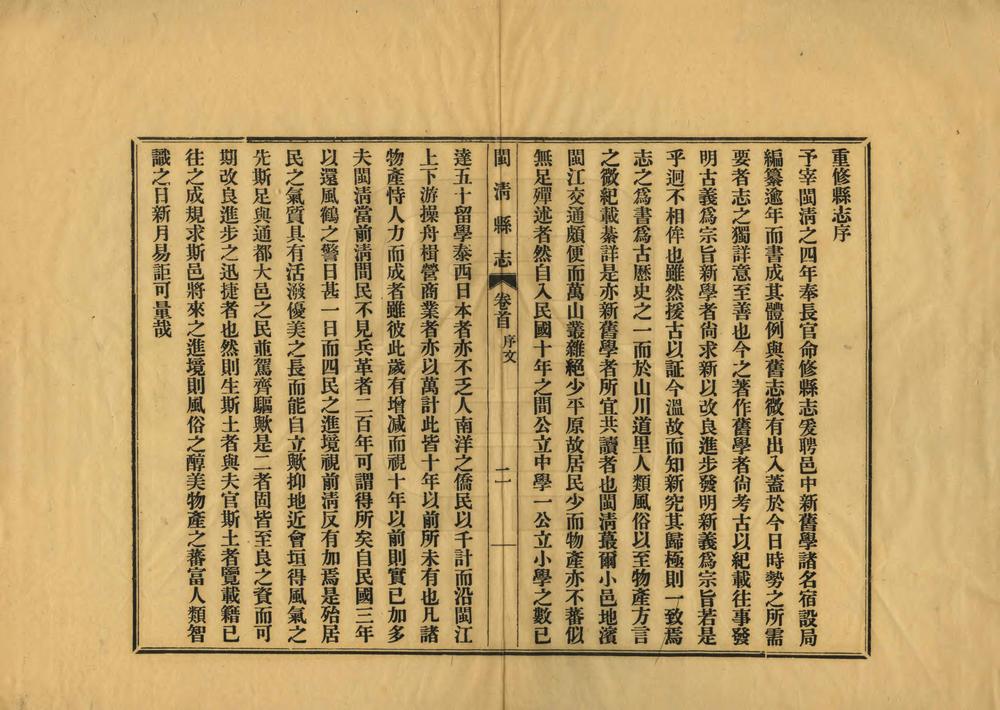 重修縣志序
予宰閩清之四年奉長官命修縣志爰聘邑中新舊學諸名宿設局
編纂逾年而書成其體例與舊志微有出入蓋於今日時勢之所需
要者志之獨詳意至善也今之著作舊學者尚考古以紀載往事發
明古義爲宗旨新學者尚求新以改良進步發明新義爲宗旨若是
乎迥不相侔也雖然援古以証今溫故而知新究其歸極則一致焉
志之爲書爲古歷史之一而於山川道里人類風俗以至物產方言
之微紀載綦詳是亦新舊學者所宜共讀者也閩清蕞爾小邑地濱
閩江交通頗便而萬山叢雜絕少平原故居民少而物產亦不蕃似
無足殫述者然自入民國十年之間公立中學一公立小學之數已
閩清縣志 卷首 序文 二
達五十留學泰西日本者亦不乏人南洋之僑民以千計而沿閩江
上下游操舟楫營商業者亦以萬計此皆十年以前所未有也凡諸
物產恃人力而成者雖彼此歲有增減而視十年以前則實已加多
夫閩清當前清間民不見兵革者二百年可謂得所矣自民國三年
以還風鶴之警日甚一日而四民之進境視前清反有加焉是殆居
民之氣質具有活潑優美之長而能自立歟抑地近會垣得風氣之
先斯足與通都大邑之民並駕齊驅歟是二者固皆至良之資而可
期改良進步之迅捷者也然則生斯土者與夫官斯土者覽載籍已
往之成規求斯邑將來之進境則風俗之醇美物產之蕃富人類智
識之日新月易詎可量哉